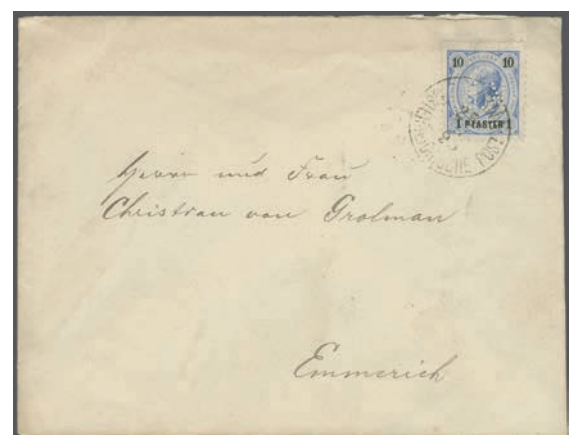 10 10
1 PIASTER 1
Herrn und Frau
Christian von Grolman
Emmerich